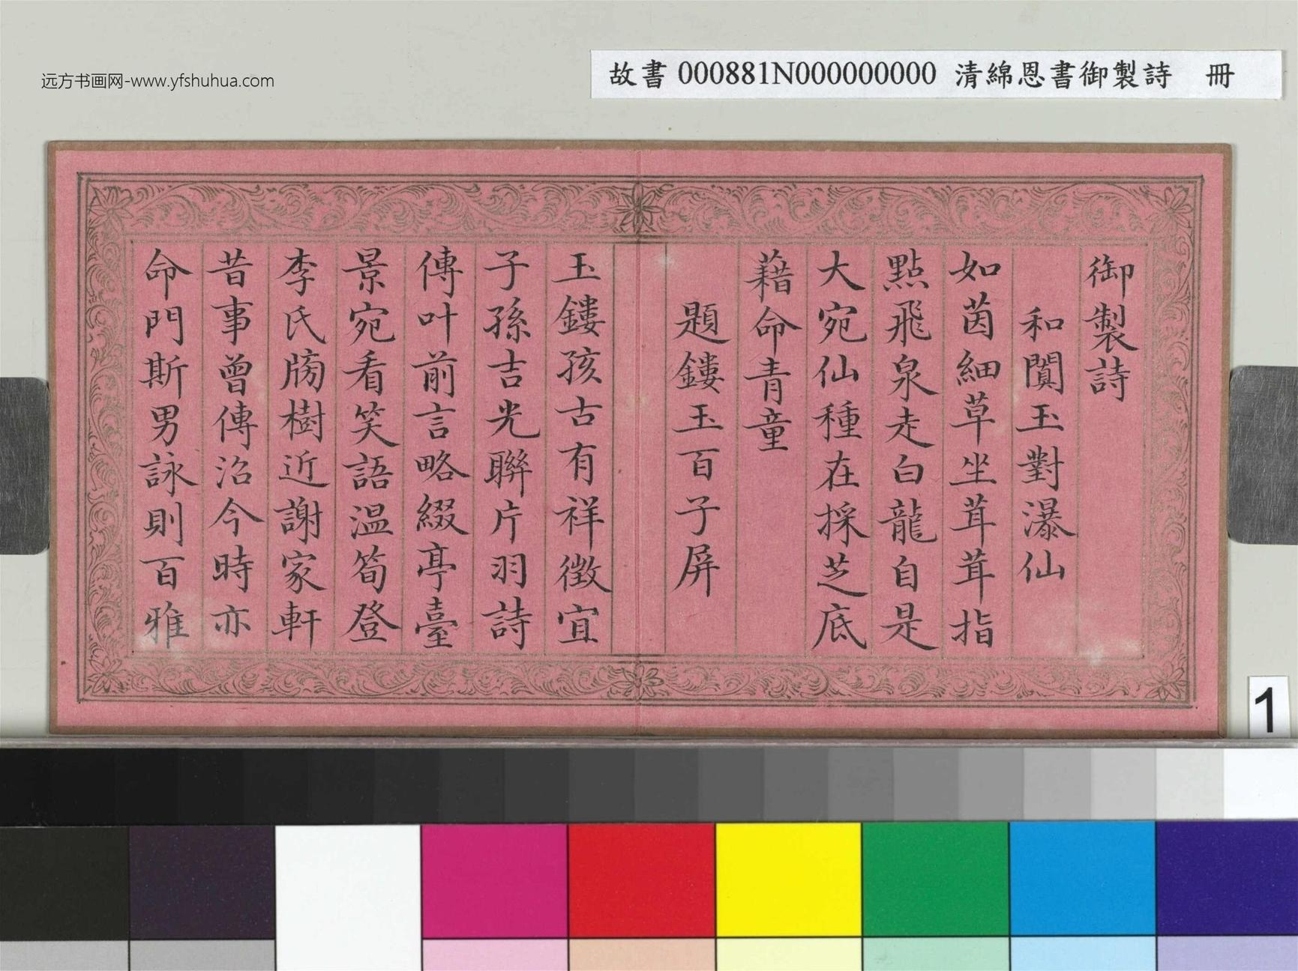 远方书画网-www.yfshuhua.com
故書 000881N000000000 清綿恩書御製詩 冊
御製詩
和闐玉對瀑仙
如茵細草坐茸茸指
點飛泉走白龍自是
大宛仙種在採芝底
藉命青童
題鏤玉百子屏
玉鏤孩古有祥徵宜
子孫吉光聯片羽詩
傳叶前言略綴亭臺
景宛看笑語温筍登
李氏牓樹近謝家軒
昔事曾傳治今時亦
命門斯男詠則百雅
1